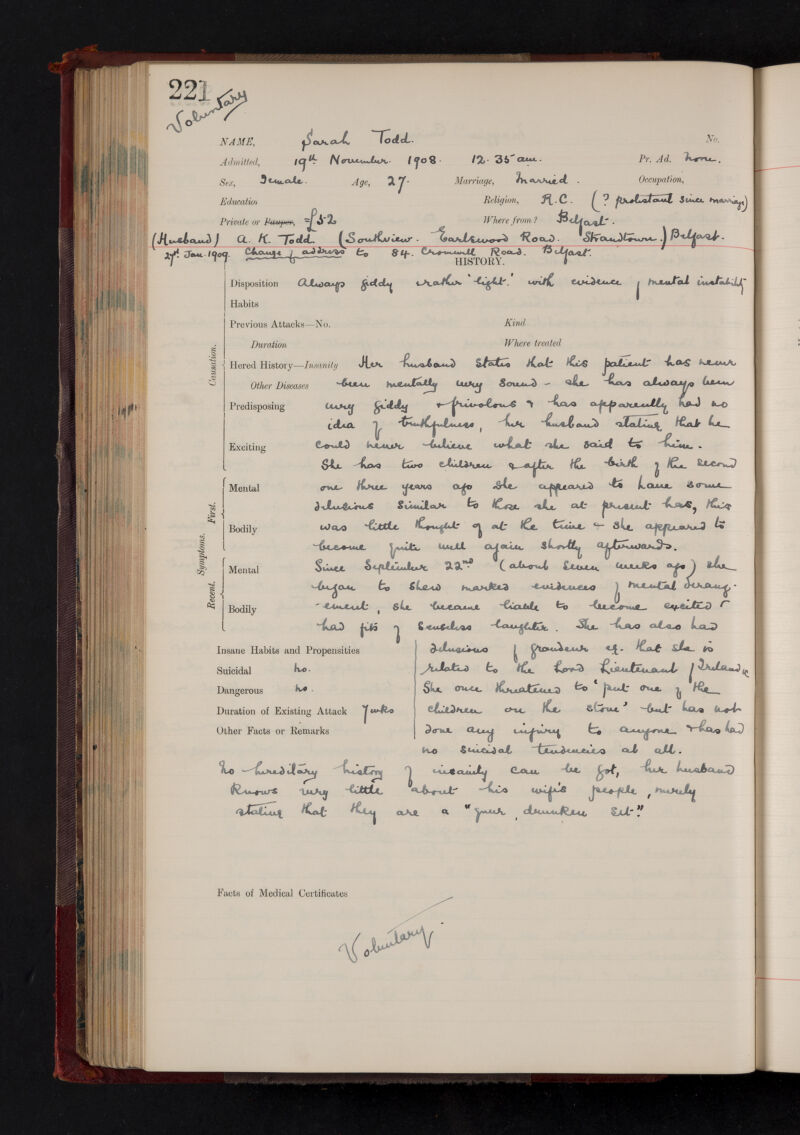 221
Voluntary
NAME, Sarah Todd. No.
Admitted, 19th November 1908. 12.35 am. Pr. Ad. None.
Sex, Female. Age, 27. Marriage, Married. Occupation,
Education Religion, R.C. (? protestant since marriage)
Private or Pauper, £52 Where from? Belfast.
(Husband) A. K. Todd. (Southview. Earlswood Road. Strandtown.) Belfast.
27th Jan. 1909. Change of address to 84. Cromwell Road. Belfast.
HISTORY.
Causation.
Disposition Always giddy & rather 'light.' with evidence of mental instability
Habits
Previous Attacks—No. Kind
Duration Where treated
Hered History—Insanity Her husband states that this patient has never
Other Diseases been mentally very sound - she has always been
Predisposing very giddy & frivolous & has apparently had no
idea of truthfulness, her husband stating that he
Exciting could never believe what she said to him.
She has two children & after the birth of the second
Symptoms.
First.
Mental one three years ago she appeared to have some
delusions similar to those she at present has, this
Bodily was little thought of at the time & she appeared to
become quite well again shortly afterwards.
Recent.
Mental Since September 22nd (about seven weeks ago) she
began to shew marked evidences of mental derang-
Bodily -ement, she became liable to become excited &
had fits of senseless laughter. She has also had
Insane Habits and Propensities delusions of grandeur eg. that she is
Suicidal No. related to the Lord Lieutenant of Ireland
Dangerous No. She once threatened to 'put one of the
Duration of Existing Attack 7 wks children on the stove' but has not
Other Facts or Remarks done any injury to anyone & has had
no suicidal tendencies at all.
No hereditary history of insanity can be got, her husband
knows very little about his wife's people, merely
stating that they are a "queer, drunken set."
Facts of Medical Certificates
Voluntary.